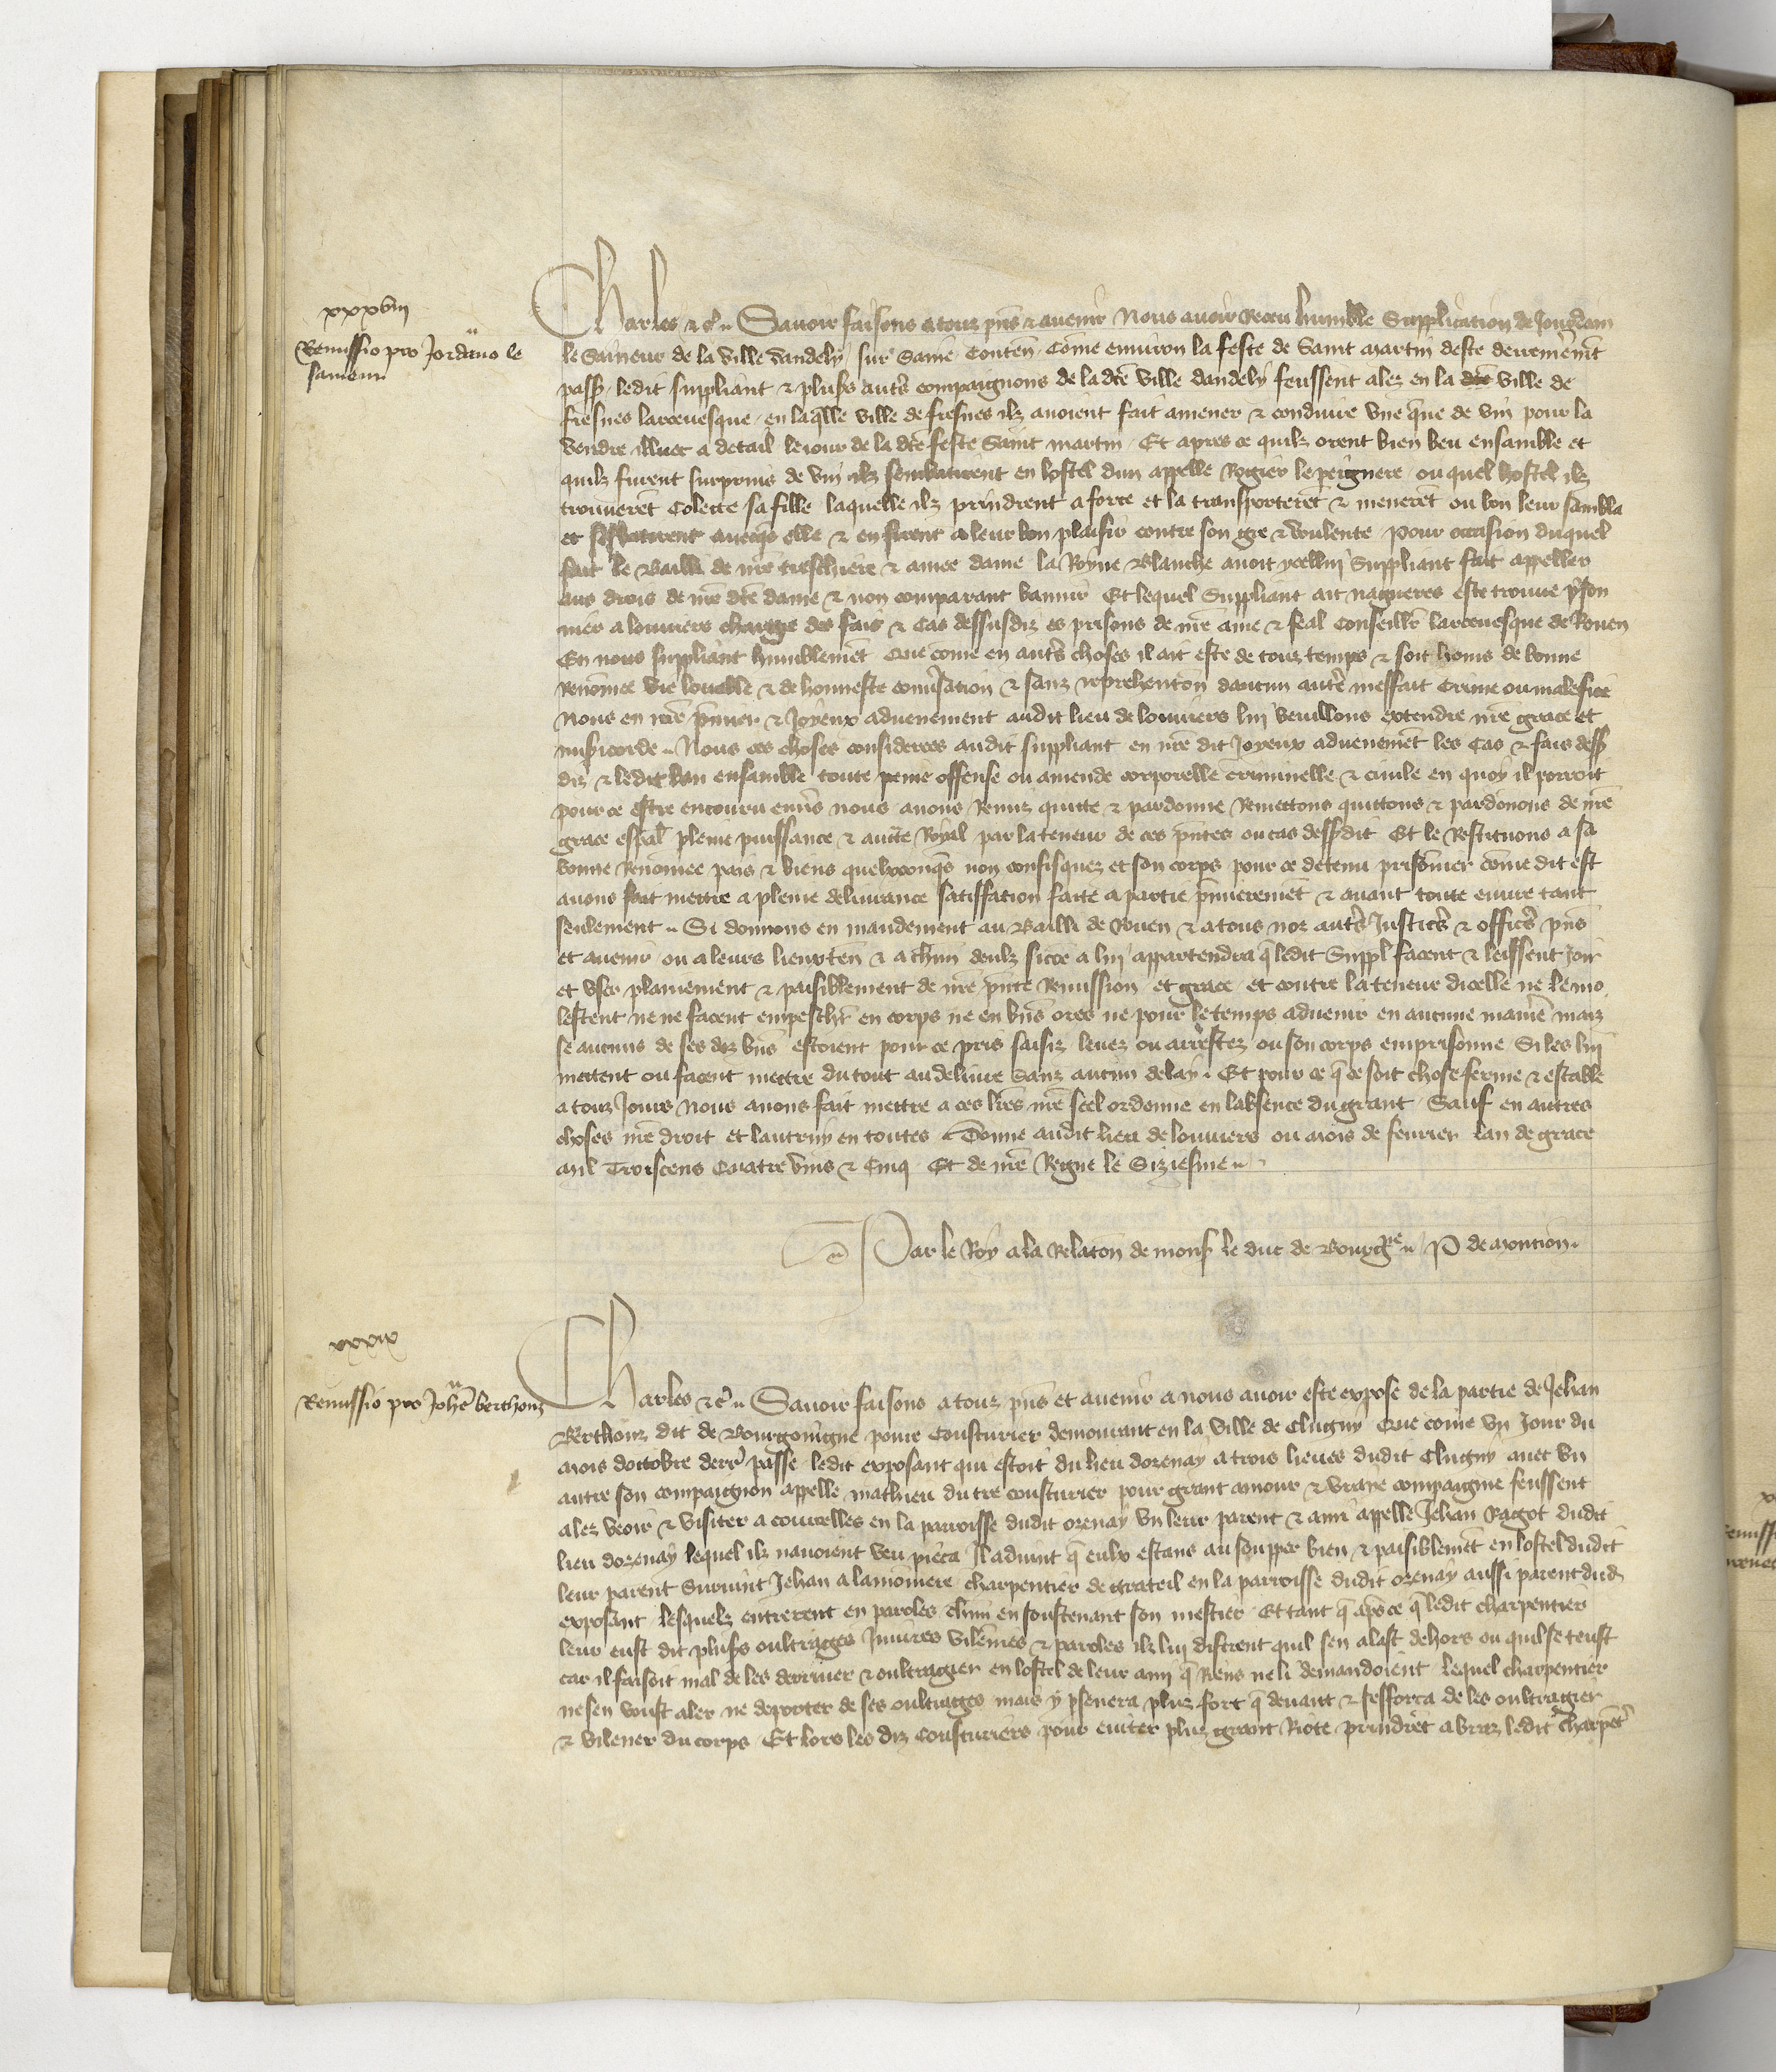 xxxviii
Remissio pro Jordano le
sameur
Charles &c. Savoir faisons a touz pns & avenir Nous avoir Receu humble Supplication de Jourdam
le Saineur de la ville dandely sur Saine Conten Come environ la feste de Saint martin deste derremeremt
pass ledit suppliant & pluss auts compaignons de la dte ville dandely feussent alez en la dte ville de
fresnes larcevesque en laqlle ville de fresnes ilz avoient fait amener & conduire une que de vin pour la
vendre illuec a detail le jour de la dte feste Saint martin Et apres ce quilz orent bien beu ensamble et
quilz furent surprins de vin ilz sembatirent en lostel dun appelle Rogier le peignere ou quel hostel ilz
trouveret Colecte sa fille laquelle ilz prindrent a force et la transporteret & meneret ou bon leur sambla
et sesbatirent avecqs elle & en firent a leur bon plaisir contre son gre & voulente Pour occasion duquel
fait le Bailli de nre treschiere & amee dame la Royne Blanche avoit ycellui Suppliant fait appeller
aus drois de nre dte dame & non comparant bannir Et lequel Suppliant ait nagueres este trouve prison
nier a louviers charge des fais & Cas dessusdiz es prisons de nre ame & feal Conseillr larcevesque de Rouen
En nous suppliant humblemet Que come en auts choses il ait este de touz temps & soit homs de bonne
Renomee vie louable & de honneste convsacion & sanz reprehention daucun autre meffait Crime ou malefice
Nous en nre pmier & Joyeux advenement audit lieu de louviers lui veuillons extendre nre grace et
misicorde Nous ces choses considerees audit suppliant en nre dit Joyeux advenemet les Cas & fais dess
diz & ledit ban ensamble toute peine offense ou amende corporelle criminelle & civile en quoy il porroit
pour ce estre encouru envs nous avons Remis quitte & pardonne Remettons quittons & pardonons de nre
grace espal pleine puissance & aucte Royal par la teneur de ces pntes ou cas dessdit Et le Restituons a sa
bonne Renomee pais & biens quelxconqs non confisquez et son corps pour ce detenu prisonier come dit est
avons fait mettre a pleine delivrance satiffation faite a partie pmieremet & avant toute euvre tant
seulement Si donnons en mandement au Bailli de Rouen & a tous noz auts Justics & offics pns
et avenir ou a leurs lieuxten & a chun deulz sicoe a lui appartendra q ledit Suppl facent & leissent Joir
et user plainement & paisiblement de nre pnte Remission et grace et contre la teneur dicelle ne le mo
lestent ne ne facent empeschr en corps ne en bns ores ne pour le temps advenir en aucune maniè maiz
se aucuns de ses diz bns estoient pour ce pris saisiz levez ou arrestez ou son corps emprisonne Si les lui
mettent ou facent mettre du tout au delivre Sanz aucun delay Et pour ce q ce soit chose ferme & estable
a touz Jours Nous avons fait mettre a ces lres nre seel ordonne en labsence du grant Sauf en autres
choses nre droit et lautruy en toutes Donne audit lieu de louviers ou mois de fevrier lan de grace
mil Troiscens Quatre vins & Cinq Et de nre Regne le Siziesme
Par le Roy a la Relaton de mons le duc de Bourgne P de Moncion
xxxix
Remissio pro Johe berthonz
Charles &c. Savoir faisons a touz pns et avenir a nous avoir este expose de la partie de Jehan
Berthonz dit de Bourgoingne povre Cousturier demourant en la ville de Clugny Que come un Jour du
mois doctobre derr passe ledit exposant qui estoit du lieu dozenay a trois lieues dudit Clugny avec un
autre son compaignon appelle mathieu du tre cousturier pour grant amour & vraye compaignie feussent
alez veoir & visiter a courcelles en la parroisse dudit ozenay un leur parent & ami appelle Jehan Ragot dudit
lieu dozenay lequel ilz navoient veu pieca Il advint q eulx estans au soupper bien & paisiblemet en lostel dudit
leur parent Survint Jehan a lamoinere charpentier de grateil en la parroisse dudit ozenay aussi parent dud
exposant lesquelz entrerent en paroles chun en soustenant son mestier Et tant q aps ce q ledit charpentier
leur eust dit pluss oultrages Injures vilenies & paroles ilz lui distrent quil sen alast dehors ou quil se teust
car il faisoit mal de les derriver & oultragier en lostel de leur ami q Riens ne li demandoient lequel charpentier
ne sen voust aler ne deporter de ses oultrages mais y psevera plus fort q devant & sefforca de les oultragier
& vilener du corps Et lors les diz Cousturiers pour eviter plus grant Riote prindret a braz ledit charpetr